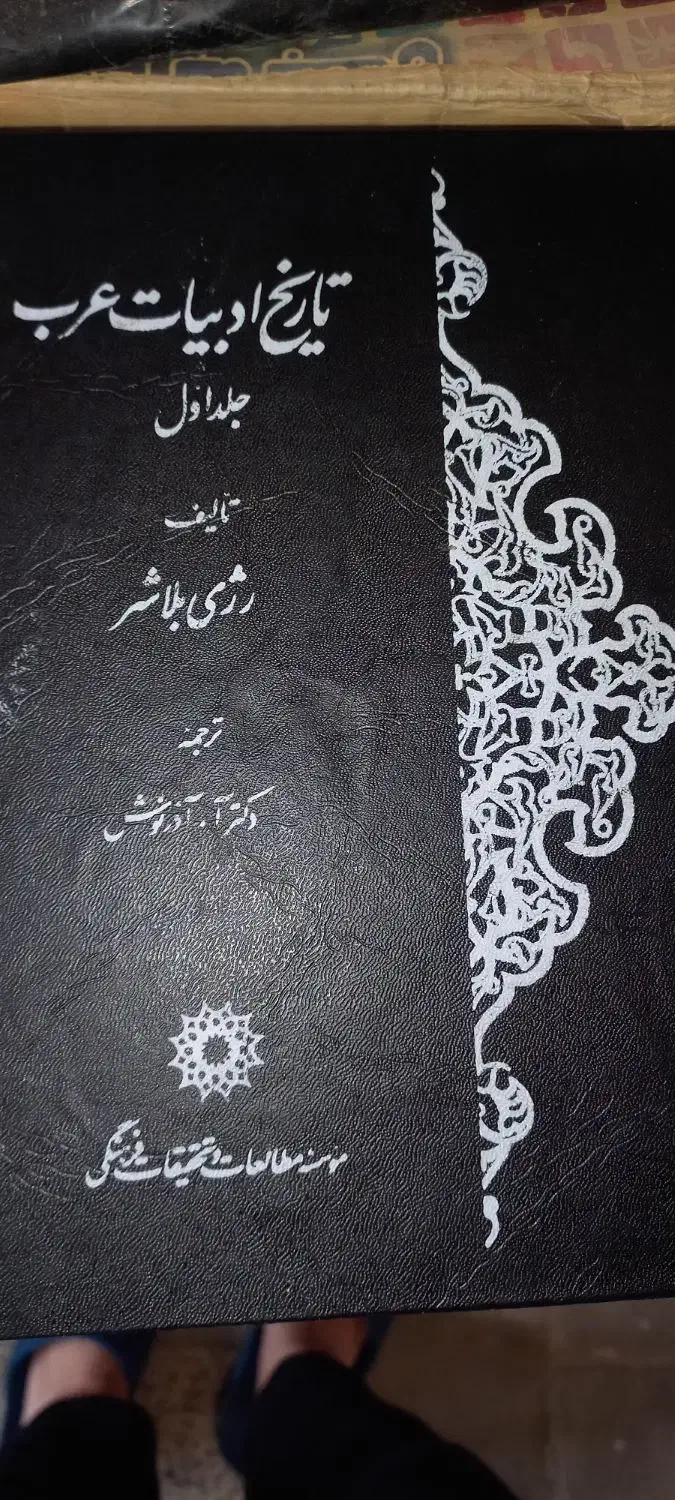 تاریخ ادبیات عرب
جلد اول
تألیف
رژی بلاشر
ترجمه
دکتر آ. آذرنوش
موسسه مطالعات و تحقیقات فرهنگی